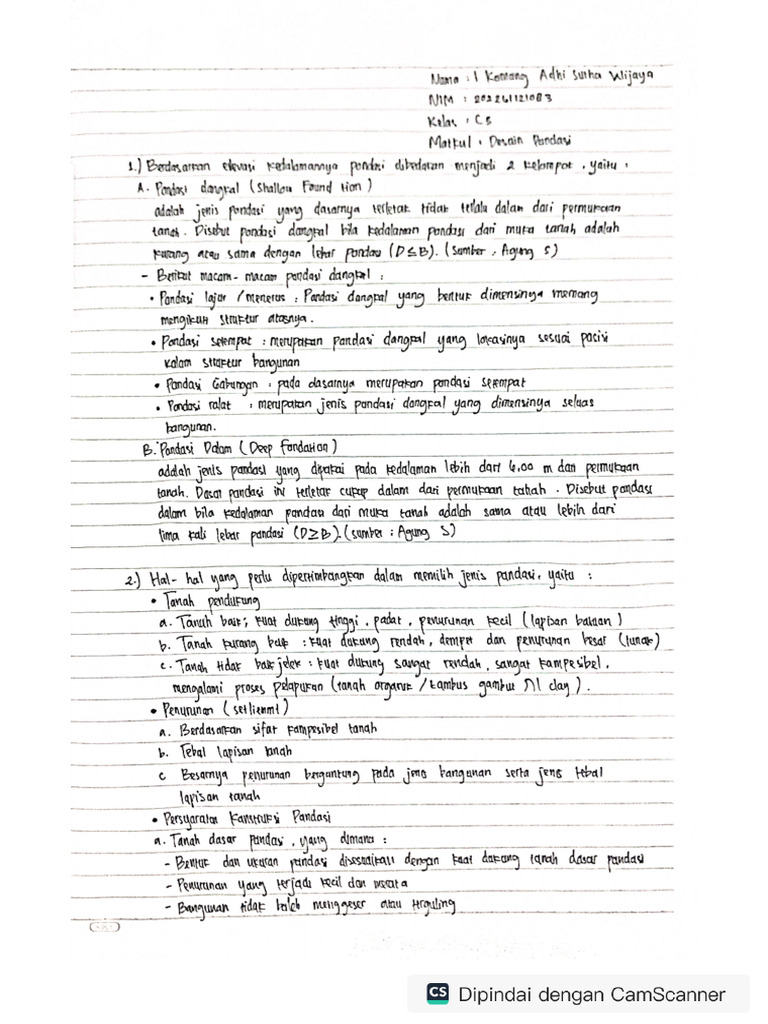 Nama : I Komang Adhi Surha Wijaya
NIM : 202261121083
Kelas : C5
Matkul : Desain Pondasi
1.) Berdasarkan elevasi kedalamannya pondasi dibedakan menjadi 2 kelompok, yaitu :
A. Pondasi dangkal (Shallow Found tion)
adalah jenis pondasi yang dasarnya terletak tidak terlalu dalam dari permukaan
tanah. Disebut pondasi dangkal bila kedalaman pondasi dari muka tanah adalah
kurang atau sama dengan lebar pondasi (D≤B). (Sumber, Agung S)
- Berikut macam-macam pondasi dangkal :
• Pondasi lajur / menerus : Pondasi dangkal yang bentuk dimensinya memang
mengikuti struktur atasnya.
• Pondasi setempat : merupakan pondasi dangkal yang lokasinya sesuai posisi
kolom struktur bangunan
• Pondasi Gabungan : pada dasarnya merupakan pondasi setempat
• Pondasi rakat : merupakan jenis pondasi dangkal yang dimensinya seluas
bangunan.
B. Pondasi Dalam (Deep Fondation)
adalah jenis pondasi yang dipakai pada kedalaman lebih dari 6,00 m dan permukaan
tanah. Dasar pondasi ini terletak cukup dalam dari permukaan tanah. Disebut pondasi
dalam bila kedalaman pondasi dari muka tanah adalah sama atau lebih dari
lima kali lebar pondasi (D≥B). (sumber : Agung S)
2.) Hal-hal yang perlu dipertimbangkan dalam memilih jenis pondasi, yaitu :
• Tanah pendukung
a. Tanah baik; kuat dukung tinggi, padat, penurunan kecil (lapisan batuan)
b. Tanah kurang baik : kuat dukung rendah, dempet dan penurunan besar (lunak)
c. Tanah tidak baik jelek : kuat dukung sangat rendah, sangat kompesibel,
mengalami proses pelapukan (tanah organik / tambus gambut clay).
• Penurunan (setlienmt)
a. Berdasarkan sifat kompesibel tanah
b. Tebal lapisan tanah
c Besarnya penurunan bergantung pada jenis bangunan serta jenis tebal
lapisan tanah
• Persyaratan Konstruksi Pondasi
a. Tanah dasar pondasi, yang dimana :
- Bentuk dan ukuran pondasi disesuaikan dengan kuat dukung tanah dasar pondasi
- Penurunan yang terjadi kecil dan merata
- Bangunan tidak boleh menggeser atau terguling
CS Dipindai dengan CamScanner